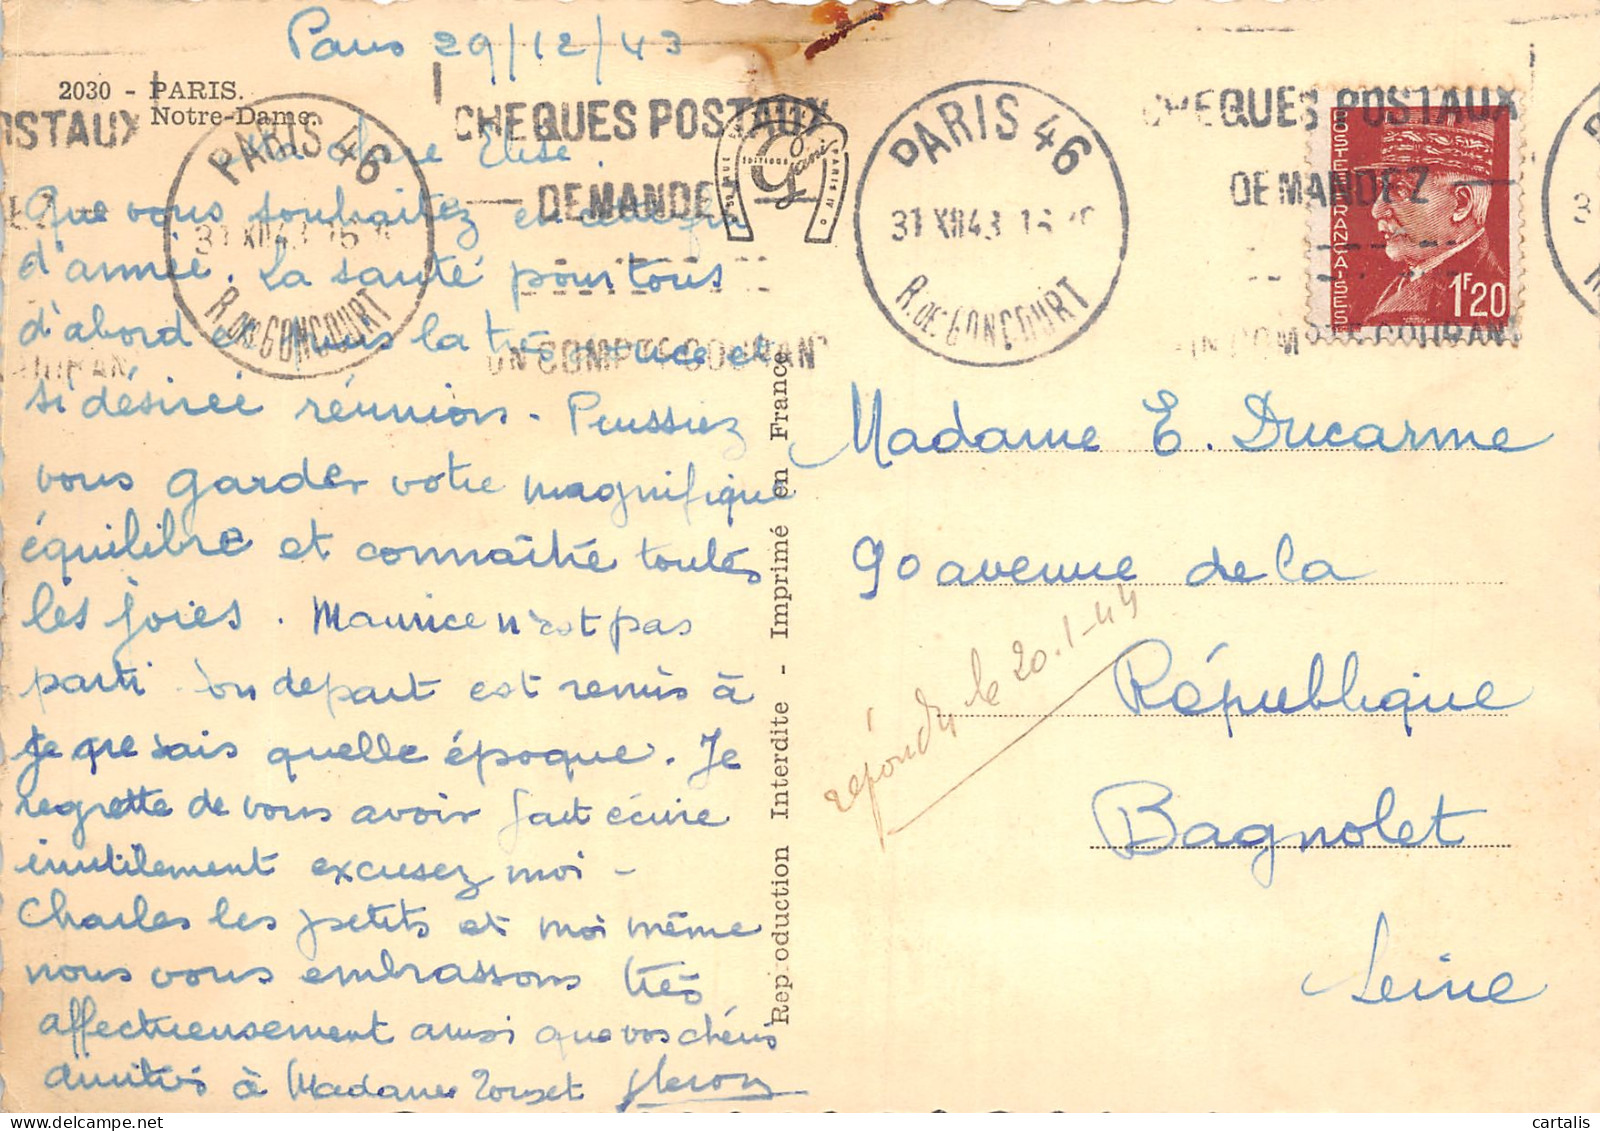 Paris 29/12/43
2030 - PARIS.
Notre-Dame.
Ma chère Elise.
Que vous souhaitez en cette fin
d'année. La santé pour tous
d'abord et puis la très et
si désirée réunion - Puissiez
vous garder votre magnifique
équilibre et connaître toutes
les joies. Maurice n'est pas
parti son depart est remis à
je ne sais quelle époque. Je
regrette de vous avoir fait écrire
inutilement excusez moi -
Charles les petits et moi même
nous vous embrassons très
affectueusement ainsi que vos chéris
amitiés à Madame
Reproduction Interdite - Imprimé en France
EDITIONS
Gani
PARIS IV
PARIS 46
31 XII 43 16
R. DE GONCOURT
CHEQUES POSTAUX
DEMANDEZ
UN COMPTE COURANT
PARIS 46
31 XII 43 16
R. DE GONCOURT
CHEQUES POSTAUX
DEMANDEZ
UN COMPTE COURANT
POSTES FRANCAISES
1F20
Madame E. Ducarme
90 avenue de la
République
Bagnolet
Seine
répondu le 20.1-44
cartalis